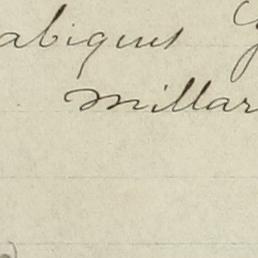 abiques
Millar